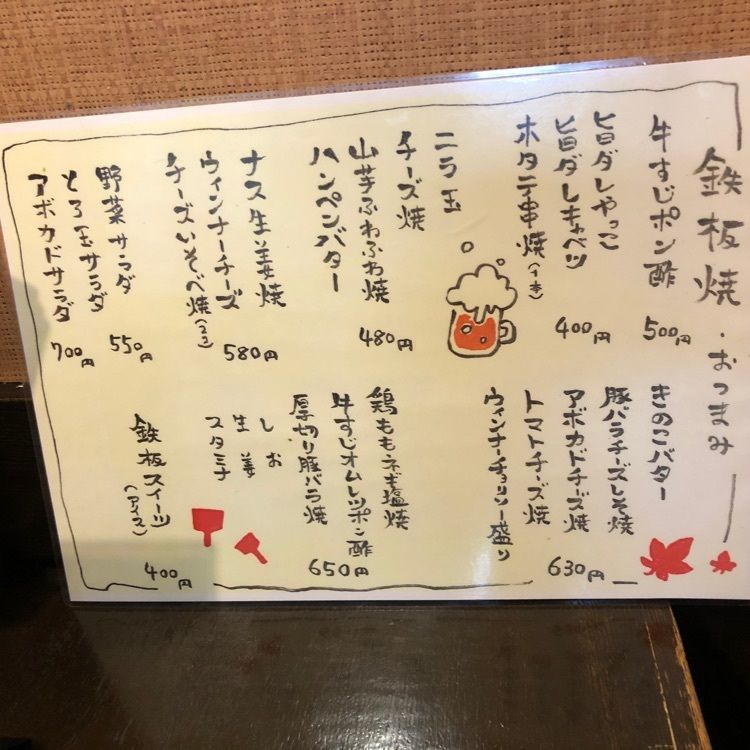 鉄板焼・おつまみ
牛すじポン酢
500円
旨ダレやっこ
旨ダレキャベツ
ホタテ串焼(1本)
400円
ニラ玉
チーズ焼
山芋ふわふわ焼
ハンペンバター
480円
ナス生姜焼
ウィンナーチーズ
チーズいそべ焼(2コ)
580円
野菜サラダ
550円
とろ玉サラダ
アボカドサラダ
700円
きのこバター
豚バラチーズしそ焼
アボカドチーズ焼
トマトチーズ焼
ウィンナーチョリソー盛り
630円
鶏ももネギ塩焼
牛すじオムレツポン酢
厚切り豚バラ焼
650円
しお
生姜
スタミナ
鉄板スイーツ
(アイス)
400円